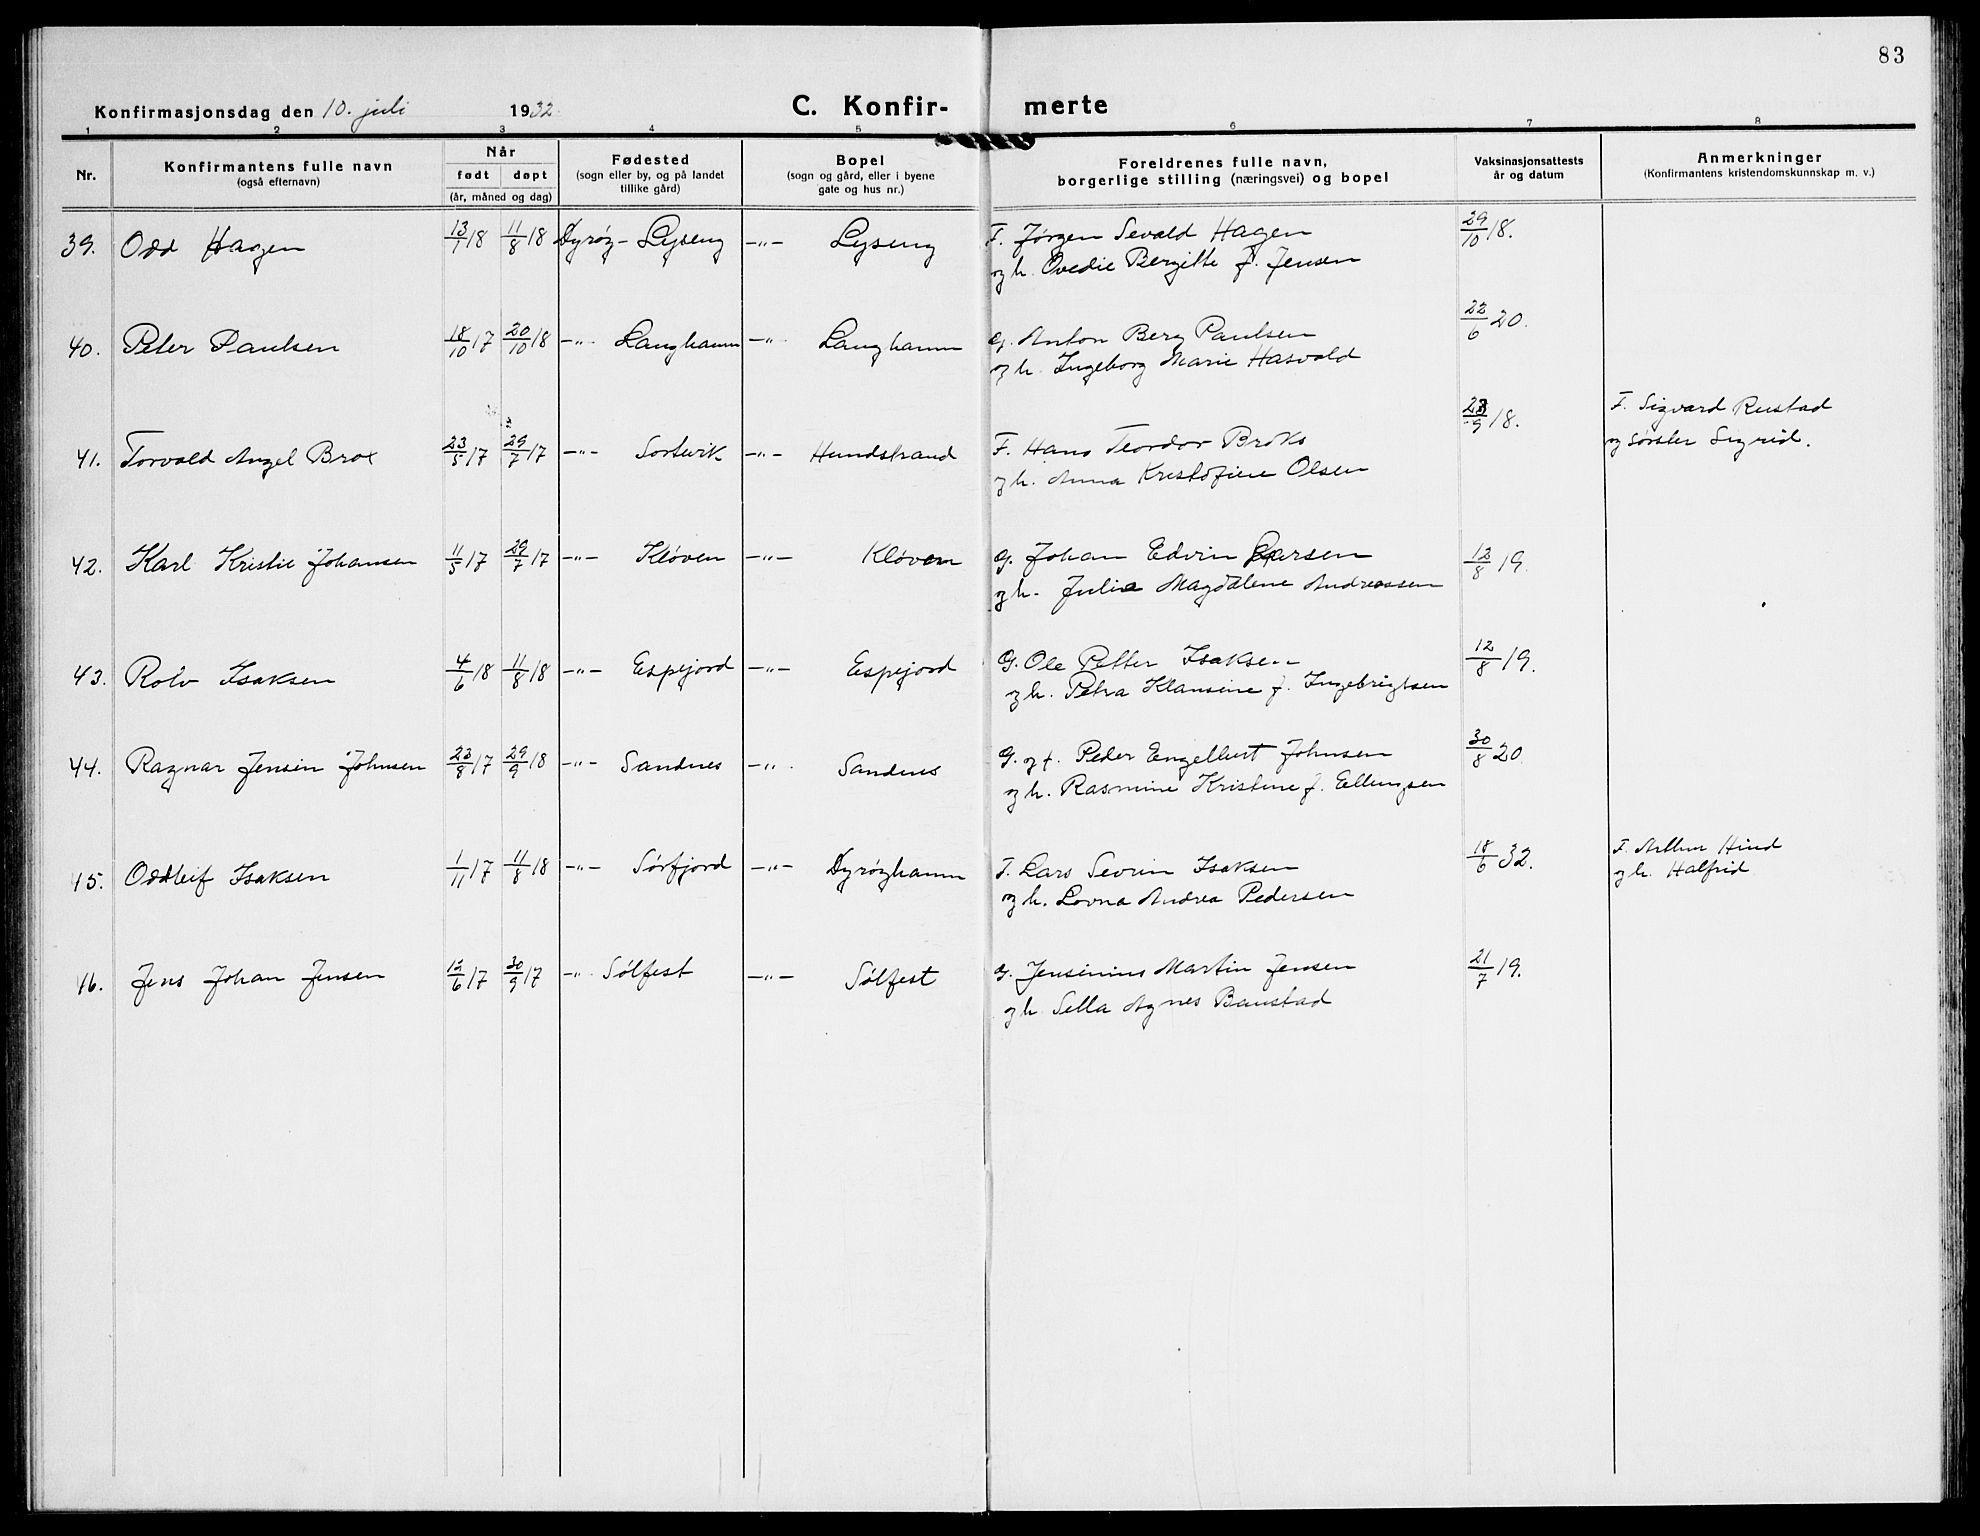 83
Konfirmasjonsdag den 10. juli 1932
C. Konfir- merte
1 2 3 4 5 6 7 8
Nr.
Konfirmantens fulle navn
(også efternavn)
Når
født døpt
(år, måned og dag)
Fødested
(sogn eller by, og på landet
tillike gård)
Bopel
(sogn og gård, eller i byene
gate og hus nr.)
Foreldrenes fulle navn,
borgerlige stilling (næringsvei) og bopel
Vaksinasjonsattests
år og datum
Anmerkninger
(Konfirmantens kristendomskunnskap m. v.)
39. Odd Hagen 13/1 18 11/8 18 Dyrøy - Lyseng -"- Lyseng F. Jørgen Sevald Hagen 29/10 18.
og h. Ovedie Bergitte f. Jensen
40. Peter Paulsen 18/10 17 20/10 18 -"- Langhamn -"- Langhamn G. Anton Berg Paulsen 22/6 20.
og h. Ingeborg Marie Hasvold
41. Torvald Angel Brox 23/5 17 29/7 17 -"- Sortvik -"- Hundstrand F. Hans Teordor Broks 23/9 18. F. Sigvard Rustad
og h. Anna Kristofine Olsen og søster Sigrid.
42. Karl Kristie Johansen 11/5 17 29/7 17 -"- Kløven -"- Kløven G. Johan Edvin Larsen 12/8 19.
og h. Julie Magdalene Andreassen
43. Rolv Isaksen 4/6 18 11/8 18 -"- Espejord -"- Espejord G. Ole Petter Isaksen 12/8 19.
og h. Petra Klausine f. Ingebrigtsen
44. Ragnar Jensin Johnsen 23/8 17 29/9 18 -"- Sandnes -"- Sandnes G. og f. Peder Engelbert Johnsen 30/8 20.
og h. Rasmine Kristine f. Ellingsen
45. Oddleif Isaksen 1/11 17 11/8 18 -"- Sørfjord -"- Dyrøyhamn F. Lars Sevrin Isaksen 18/6 32. F. Arthur Hind
og h. Lovna Andrea Pedersen og h. Halfrid
46. Jens Johan Jensen 12/6 17 30/9 17 -"- Sølfest -"- Sølfest G. Jensinius Martin Jensen 21/7 19.
og h. Sella Agnes Baustad